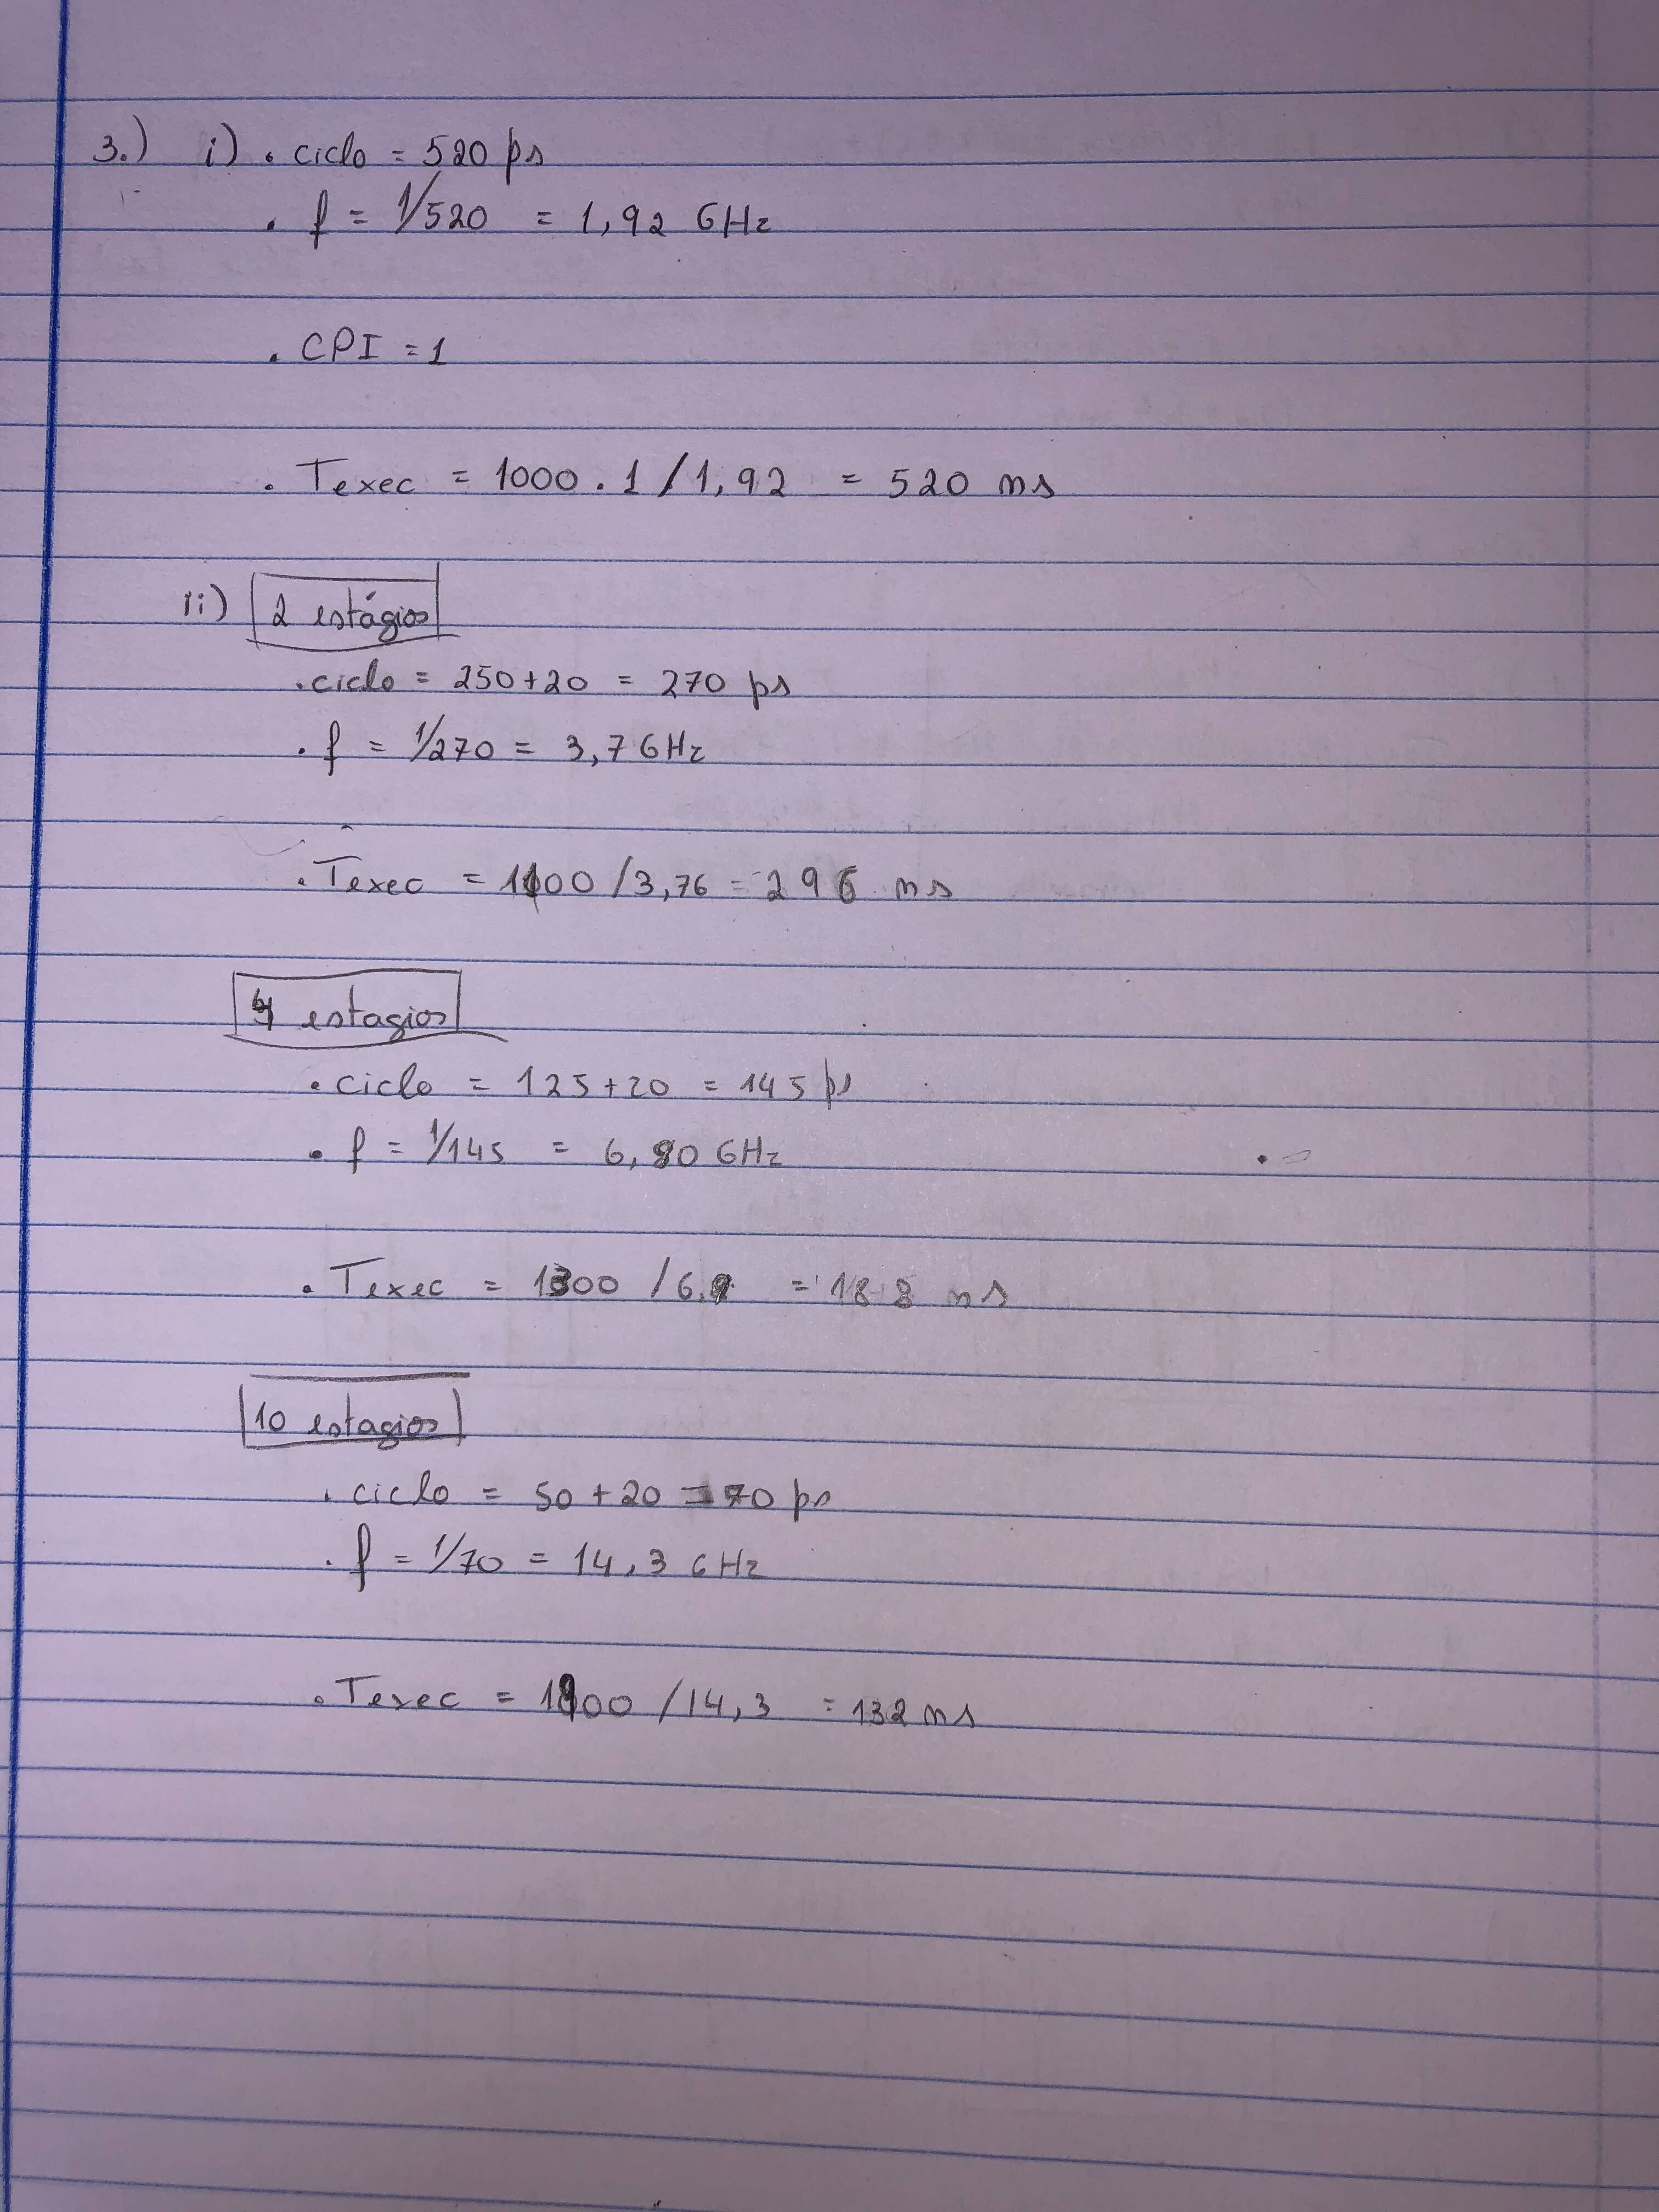 3.) i) . ciclo = 520 ps
. f = 1/520 = 1,92 GHz
. CPI = 1
. Texec = 1000 . 1 / 1,92 = 520 ns
ii) 2 estágios
. ciclo = 250+20 = 270 ps
. f = 1/270 = 3,7 GHz
. Texec = 1100 / 3,76 = 296 ns
4 estagios
. ciclo = 125+20 = 145 ps
. f = 1/145 = 6,90 GHz
. Texec = 1300 / 6,9 = 188 ns
10 estagios
. ciclo = 50 + 20 = 70 ps
. f = 1/70 = 14,3 GHz
. Texec = 1900 / 14,3 = 132 ns